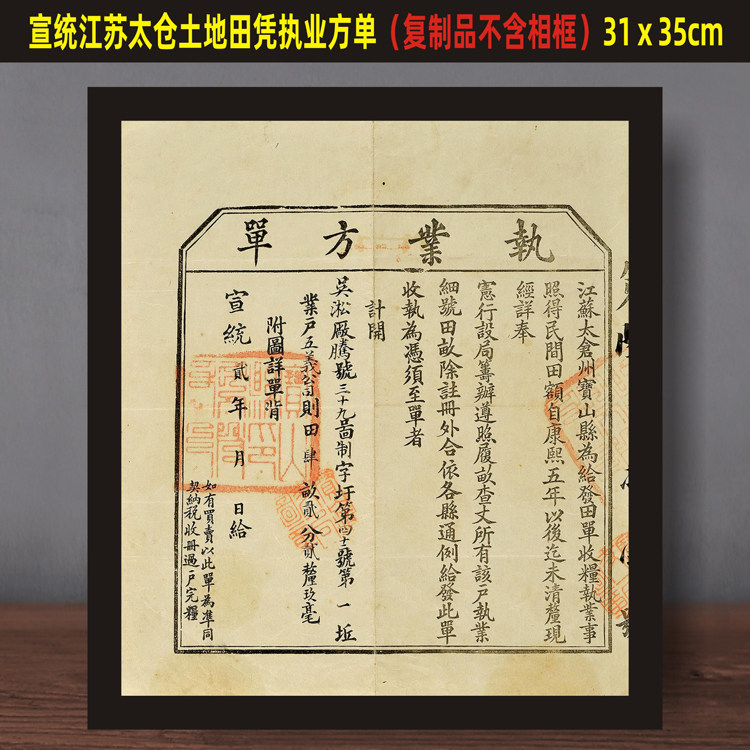 宣统江苏太仓土地田凭执业方单（复制品不含相框）31 x 35cm
執業方單
江蘇太倉州寶山縣為給發田單收糧執業事
照得民間田額自康熙五年以後迄未清釐現
經詳奉
憲行設局籌辦遵照履畝查丈所有該戶執業
細號田畝除註冊外合依各縣通例給發此單
收執為憑須至單者
計開
吳淞廠騰號三十九啚制字圩第四十二號第一坵
業戶五義公司則田肆畝貳分貳釐玖毫
附圖詳單背
宣統貳年月日給
如有買賣以此單為準同
契納稅收冊過戶完糧